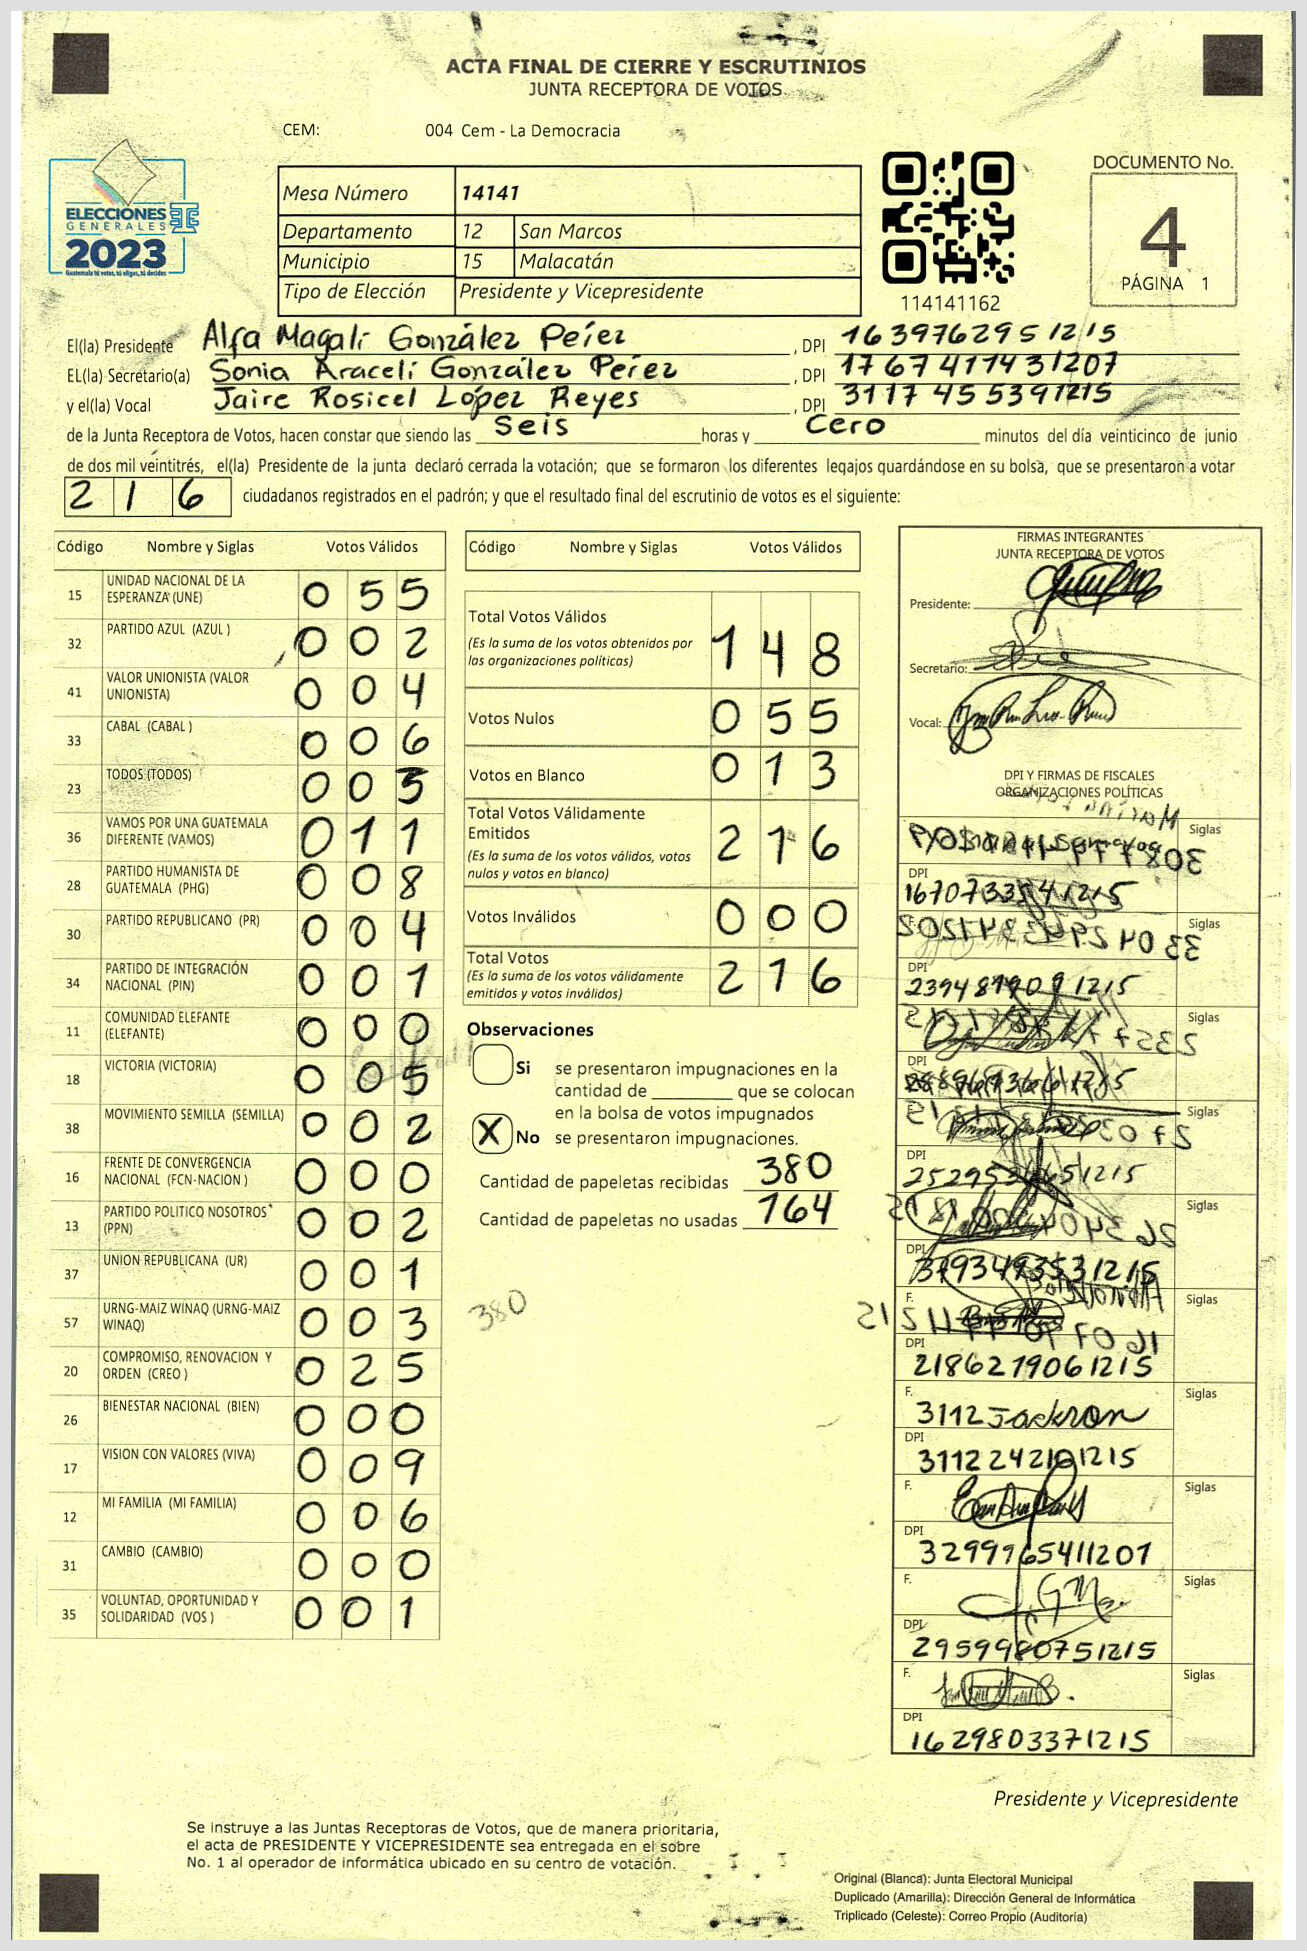 ACTA FINAL DE CIERRE Y ESCRUTINIOS
JUNTA RECEPTORA DE VOTOS
CEM: 004 Cem - La Democracia
ELECCIONES
GENERALES
2023
Guatemala tú votas, tú eliges, tú decides
Mesa Número 14141
Departamento 12 San Marcos
Municipio 15 Malacatán
Tipo de Elección Presidente y Vicepresidente
114141162
DOCUMENTO No.
4
PÁGINA 1
El(la) Presidente Alfa Magalí González Peréz , DPI 1639762951215
EL(la) Secretario(a) Sonia Aracelí González Peréz , DPI 1767411431207
y el(la) Vocal Jaire Rosicel López Reyes , DPI 3117455391215
de la Junta Receptora de Votos, hacen constar que siendo las Seis horas y Cero minutos del día veinticinco de junio
de dos mil veintitrés, el(la) Presidente de la junta declaró cerrada la votación; que se formaron los diferentes legajos quardándose en su bolsa, que se presentaron a votar
216 ciudadanos registrados en el padrón; y que el resultado final del escrutinio de votos es el siguiente:
Código Nombre y Siglas Votos Válidos
15 UNIDAD NACIONAL DE LA ESPERANZA (UNE) 055
32 PARTIDO AZUL (AZUL ) 002
41 VALOR UNIONISTA (VALOR UNIONISTA) 004
33 CABAL (CABAL ) 006
23 TODOS (TODOS) 003
36 VAMOS POR UNA GUATEMALA DIFERENTE (VAMOS) 011
28 PARTIDO HUMANISTA DE GUATEMALA (PHG) 008
30 PARTIDO REPUBLICANO (PR) 004
34 PARTIDO DE INTEGRACIÓN NACIONAL (PIN) 001
11 COMUNIDAD ELEFANTE (ELEFANTE) 000
18 VICTORIA (VICTORIA) 005
38 MOVIMIENTO SEMILLA (SEMILLA) 002
16 FRENTE DE CONVERGENCIA NACIONAL (FCN-NACION ) 000
13 PARTIDO POLITICO NOSOTROS (PPN) 002
37 UNION REPUBLICANA (UR) 001
57 URNG-MAIZ WINAQ (URNG-MAIZ WINAQ) 003
20 COMPROMISO, RENOVACION Y ORDEN (CREO ) 025
26 BIENESTAR NACIONAL (BIEN) 000
17 VISION CON VALORES (VIVA) 009
12 MI FAMILIA (MI FAMILIA) 006
31 CAMBIO (CAMBIO) 000
35 VOLUNTAD, OPORTUNIDAD Y SOLIDARIDAD (VOS ) 001
Código Nombre y Siglas Votos Válidos
Total Votos Válidos 148
(Es la suma de los votos obtenidos por
las organizaciones políticas)
Votos Nulos 055
Votos en Blanco 013
Total Votos Válidamente
Emitidos 216
(Es la suma de los votos válidos, votos
nulos y votos en blanco)
Votos Inválidos 000
Total Votos 216
(Es la suma de los votos válidamente
emitidos y votos inválidos)
Observaciones
Si se presentaron impugnaciones en la
cantidad de ________ que se colocan
en la bolsa de votos impugnados
X No se presentaron impugnaciones.
Cantidad de papeletas recibidas 380
Cantidad de papeletas no usadas 164
380
FIRMAS INTEGRANTES
JUNTA RECEPTORA DE VOTOS
Presidente:
Secretario:
Vocal:
DPI Y FIRMAS DE FISCALES
ORGANIZACIONES POLÍTICAS
Siglas
DPI
1670733541215
Siglas
DPI
Siglas
DPI
Siglas
DPI
Siglas
DPI
3793493531215
F. Siglas
DPI
2186279061215
F. 3112 Jackson Siglas
DPI
3112242101215
F. Siglas
DPI
3299965411207
F. Siglas
DPI
2959980751215
F. Siglas
DPI
1629803371215
Presidente y Vicepresidente
Se instruye a las Juntas Receptoras de Votos, que de manera prioritaria,
el acta de PRESIDENTE Y VICEPRESIDENTE sea entregada en el sobre
No. 1 al operador de informática ubicado en su centro de votación.
Original (Blanca): Junta Electoral Municipal
Duplicado (Amarilla): Dirección General de Informática
Triplicado (Celeste): Correo Propio (Auditoría)